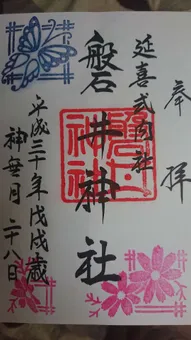 奉拝
延喜式内社
磐井神社
平成三十年戊戌歳
神無月二十八日